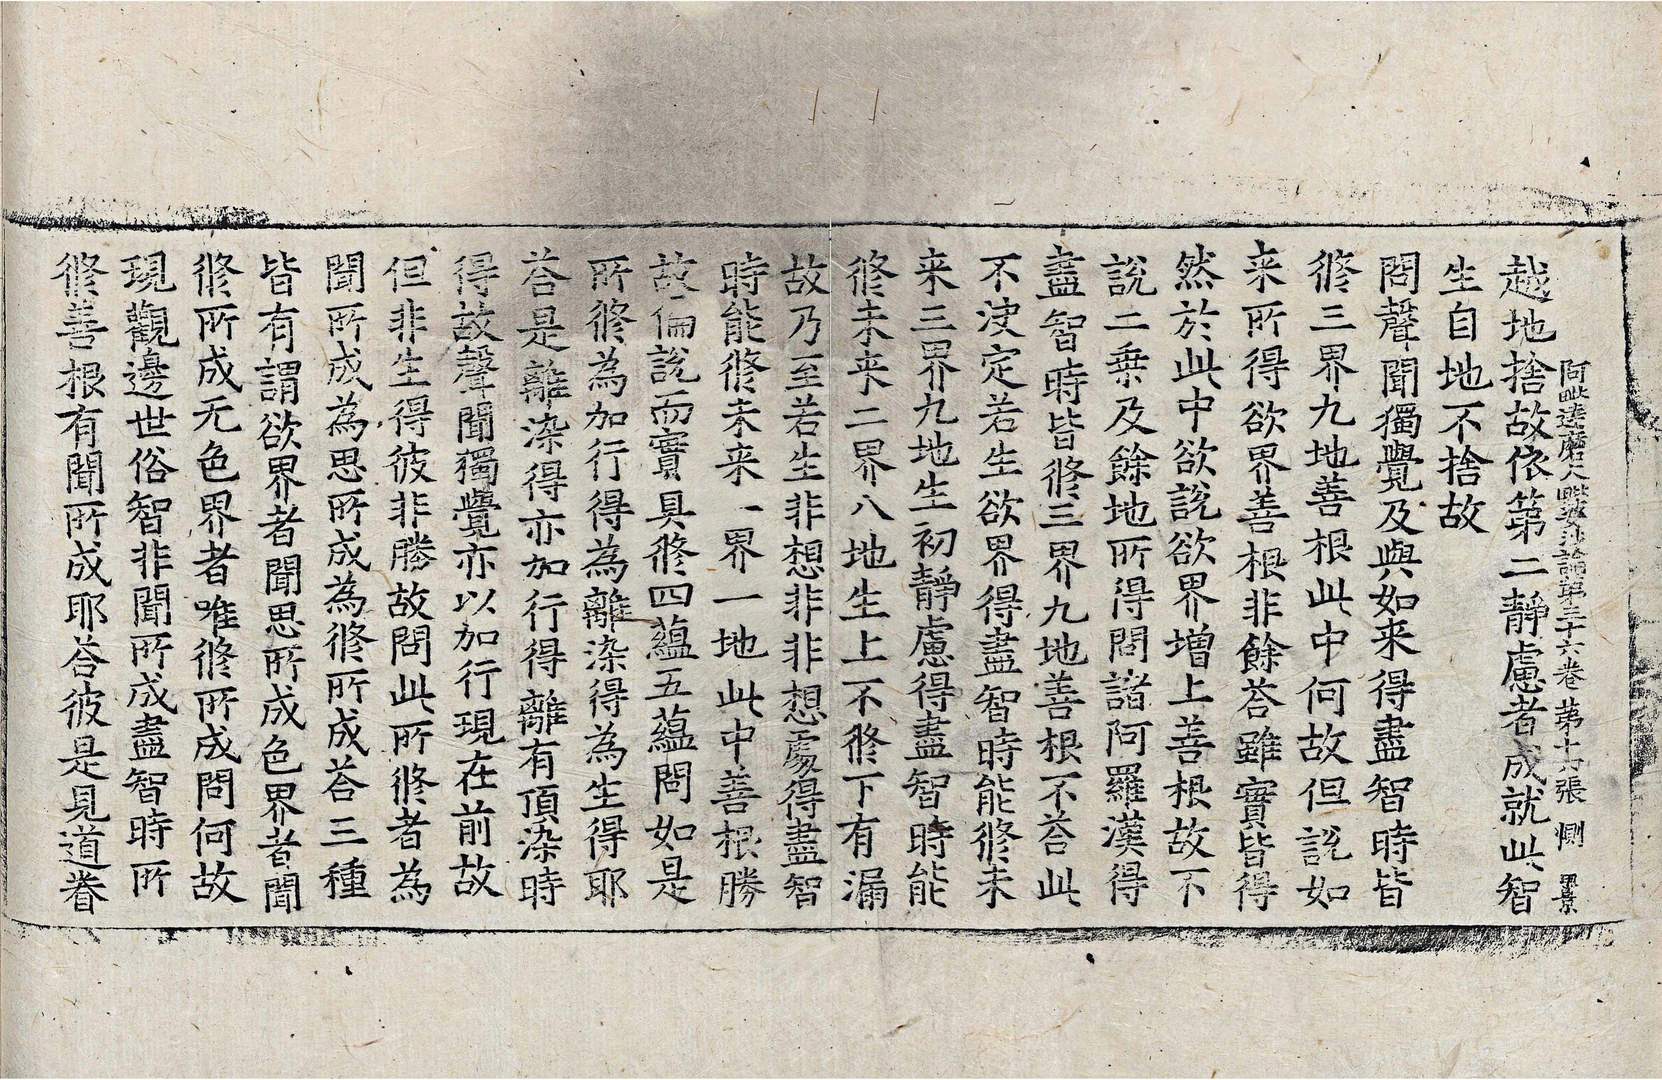 阿毗達磨大毗婆沙論第三十六卷 第十六張 惻 甲景
越地捨故依第二靜慮者成就此智
生自地不捨故
問聲聞獨覺及與如来得盡智時皆
修三界九地善根此中何故但說如
来所得欲界善根非餘荅雖實皆得
然於此中欲說欲界增上善根故不
說二乗及餘地所得問諸阿羅漢得
盡智時皆修三界九地善根不荅此
不决定若生欲界得盡智時能修未
来三界九地生初靜慮得盡智時能
修未来二界八地生上不修下有漏
故乃至若生非想非非想處得盡智
時能修未来一界一地此中善根勝
故偏說而實具修四蘊五蘊問如是
所修為加行得為離染得為生得耶
荅是離染得亦加行得離有頂染時
得故聲聞獨覺亦以加行現在前故
但非生得彼非勝故問此所修者為
聞所成為思所成為修所成荅三種
皆有謂欲界者聞思所成色界者聞
修所成无色界者唯修所成問何故
現觀邊世俗智非聞所成盡智時所
修善根有聞所成耶荅彼是見道眷